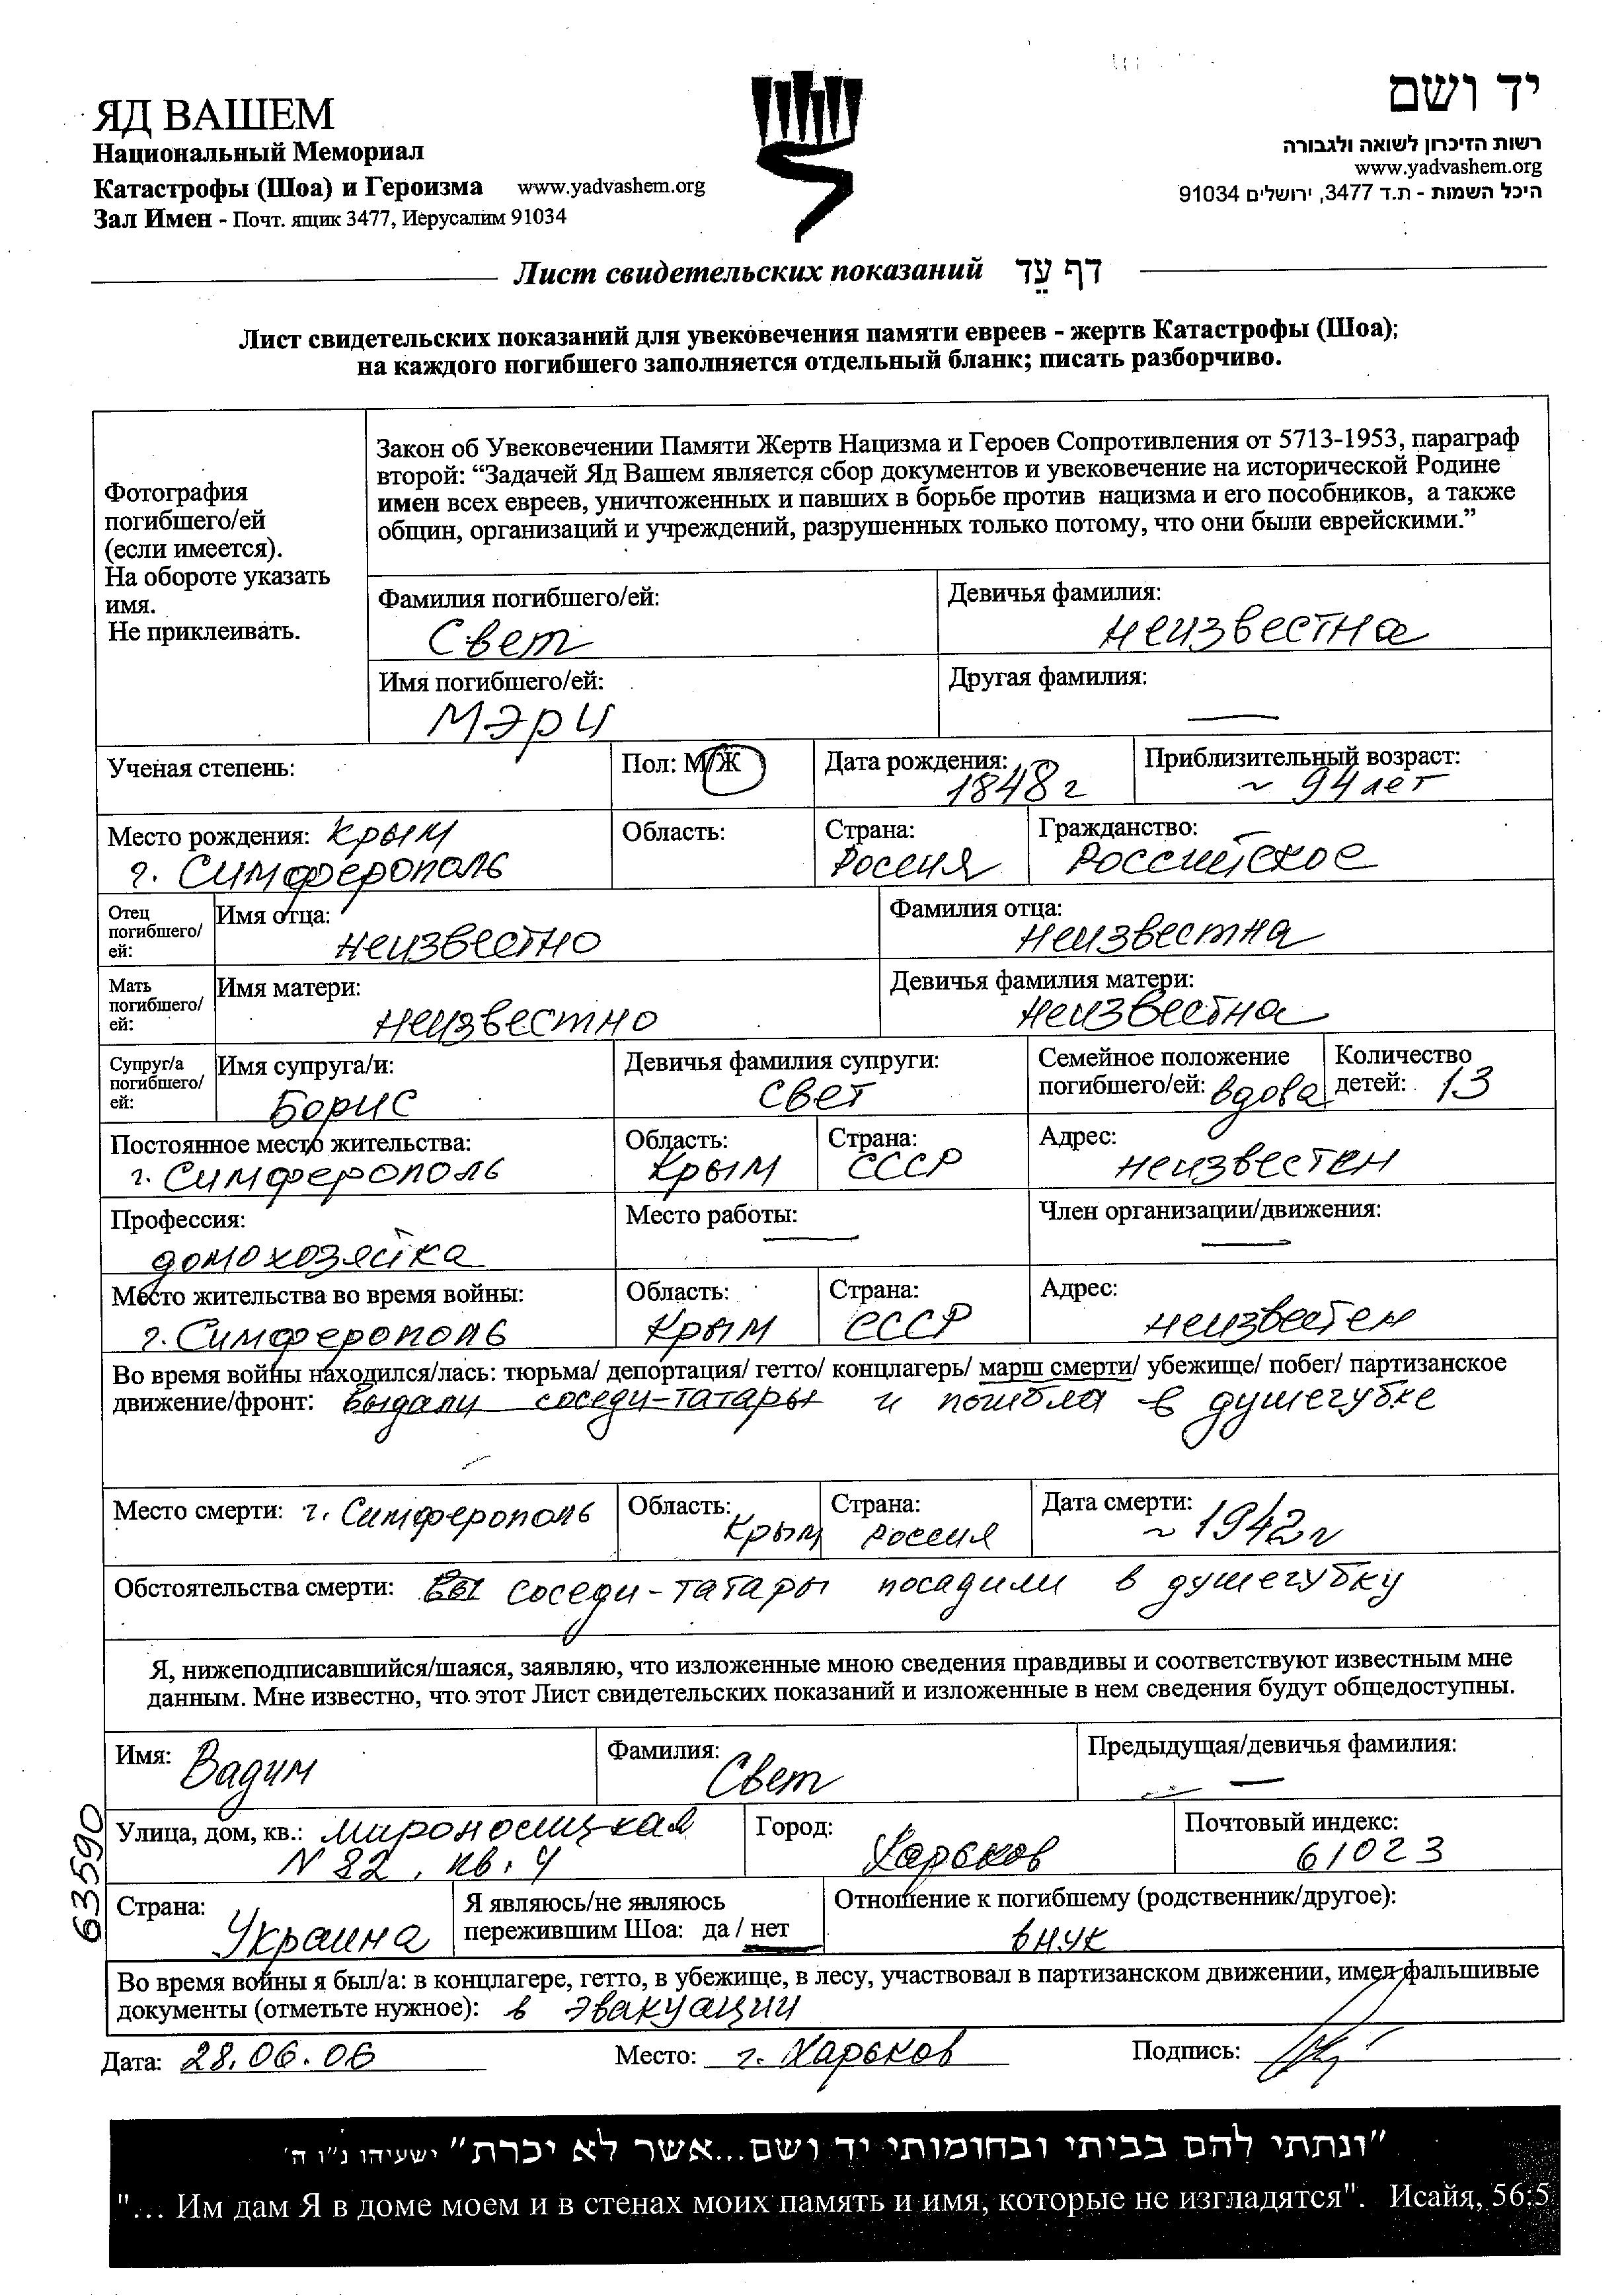 ЯД ВАШЕМ
Национальный Мемориал
Катастрофы (Шоа) и Героизма www.yadvashem.org
Зал Имен - Почт. ящик 3477, Иерусалим 91034
יד ושם
רשות הזיכרון לשואה ולגבורה
www.yadvashem.org
היכל השמות - ת.ד 3477, ירושלים 91034
Лист свидетельских показаний דף עֵד
Лист свидетельских показаний для увековечения памяти евреев - жертв Катастрофы (Шоа);
на каждого погибшего заполняется отдельный бланк; писать разборчиво.
Фотография
погибшего/ей
(если имеется).
На обороте указать
имя.
Не приклеивать.
Закон об Увековечении Памяти Жертв Нацизма и Героев Сопротивления от 5713-1953, параграф
второй: “Задачей Яд Вашем является сбор документов и увековечение на исторической Родине
имен всех евреев, уничтоженных и павших в борьбе против нацизма и его пособников, а также
общин, организаций и учреждений, разрушенных только потому, что они были еврейскими.”
Фамилия погибшего/ей:
Свет
Девичья фамилия:
неизвестна
Имя погибшего/ей:
Мэри
Другая фамилия:
—
Ученая степень:
Пол: М/Ж
Дата рождения:
1848г
Приблизительный возраст:
~ 94 лет
Место рождения: Крым
г. Симферополь
Область:
Страна:
Россия
Гражданство:
Российское
Отец
погибшего/
ей:
Имя отца:
неизвестно
Фамилия отца:
неизвестна
Мать
погибшего/
ей:
Имя матери:
неизвестно
Девичья фамилия матери:
неизвестна
Супруг/а
погибшего/
ей:
Имя супруга/и:
Борис
Девичья фамилия супруги:
Свет
Семейное положение
погибшего/ей: вдова
Количество
детей: 13
Постоянное место жительства:
г. Симферополь
Область:
Крым
Страна:
СССР
Адрес:
неизвестен
Профессия:
домохозяйка
Место работы:
—
Член организации/движения:
—
Место жительства во время войны:
г. Симферополь
Область:
Крым
Страна:
СССР
Адрес:
неизвестен
Во время войны находился/лась: тюрьма/ депортация/ гетто/ концлагерь/ марш смерти/ убежище/ побег/ партизанское
движение/фронт: выдали соседи-татары и погибла в душегубке
Место смерти: г. Симферополь
Область:
Крым
Страна:
Россия
Дата смерти:
~ 1942г
Обстоятельства смерти: вы соседи-татары посадили в душегубку
Я, нижеподписавшийся/шаяся, заявляю, что изложенные мною сведения правдивы и соответствуют известным мне
данным. Мне известно, что этот Лист свидетельских показаний и изложенные в нем сведения будут общедоступны.
Имя: Вадим
Фамилия:
Свет
Предыдущая/девичья фамилия:
—
Улица, дом, кв.: Мироносицкая
N 82, кв. 4
Город:
Харьков
Почтовый индекс:
61023
Страна:
Украина
Я являюсь/не являюсь
пережившим Шоа: да / нет
Отношение к погибшему (родственник/другое):
внук
Во время войны я был/а: в концлагере, гетто, в убежище, в лесу, участвовал в партизанском движении, имел фальшивые
документы (отметьте нужное): в эвакуации
Дата: 28.06.06 Место: г. Харьков Подпись:
63590
"ונתתי להם בביתי ובחומותי יד ושם...אשר לא יכרת" ישעיהו נ"ו ה'
"... Им дам Я в доме моем и в стенах моих память и имя, которые не изгладятся". Исайя, 56:5